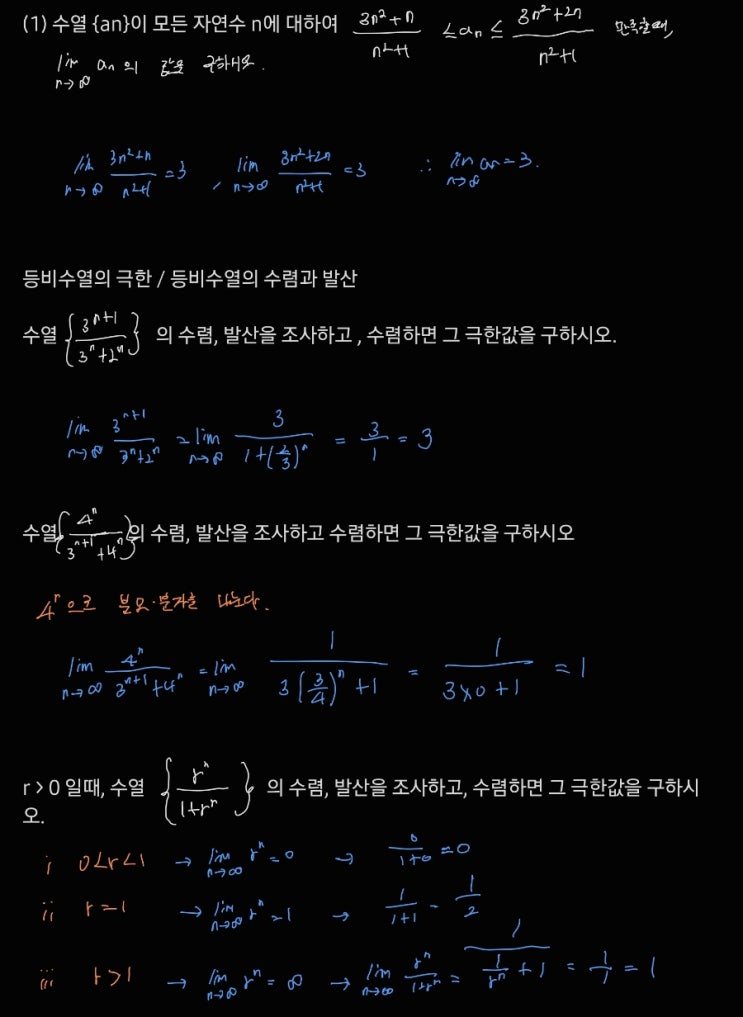 (1) 수열 {an}이 모든 자연수 n에 대하여 (3n²+n)/(n²+1) ≤ an ≤ (3n²+2n)/(n²+1) 만족할때,
lim n→∞ an 의 값을 구하시오.
lim n→∞ (3n²+n)/(n²+1) = 3 , lim n→∞ (3n²+2n)/(n²+1) = 3 ∴ lim n→∞ an = 3.
등비수열의 극한 / 등비수열의 수렴과 발산
수열 {3ⁿ⁺¹/(3ⁿ+2ⁿ)} 의 수렴, 발산을 조사하고 , 수렴하면 그 극한값을 구하시오.
lim n→∞ 3ⁿ⁺¹/(3ⁿ+2ⁿ) = lim n→∞ 3/(1+(2/3)ⁿ) = 3/1 = 3
수열{4ⁿ/(3ⁿ⁺¹+4ⁿ)}의 수렴, 발산을 조사하고 수렴하면 그 극한값을 구하시오
4ⁿ으로 분모·분자를 나눈다.
lim n→∞ 4ⁿ/(3ⁿ⁺¹+4ⁿ) = lim n→∞ 1/(3(3/4)ⁿ+1) = 1/(3×0+1) = 1
r > 0 일때, 수열 {rⁿ/(1+rⁿ)} 의 수렴, 발산을 조사하고, 수렴하면 그 극한값을 구하시
오.
i 0<r<1 → lim n→∞ rⁿ = 0 → 0/(1+0) = 0
ii r=1 → lim n→∞ rⁿ = 1 → 1/(1+1) = 1/2
iii r>1 → lim n→∞ rⁿ = ∞ → lim n→∞ rⁿ/(1+rⁿ) = 1/(1/rⁿ+1) = 1/1 = 1